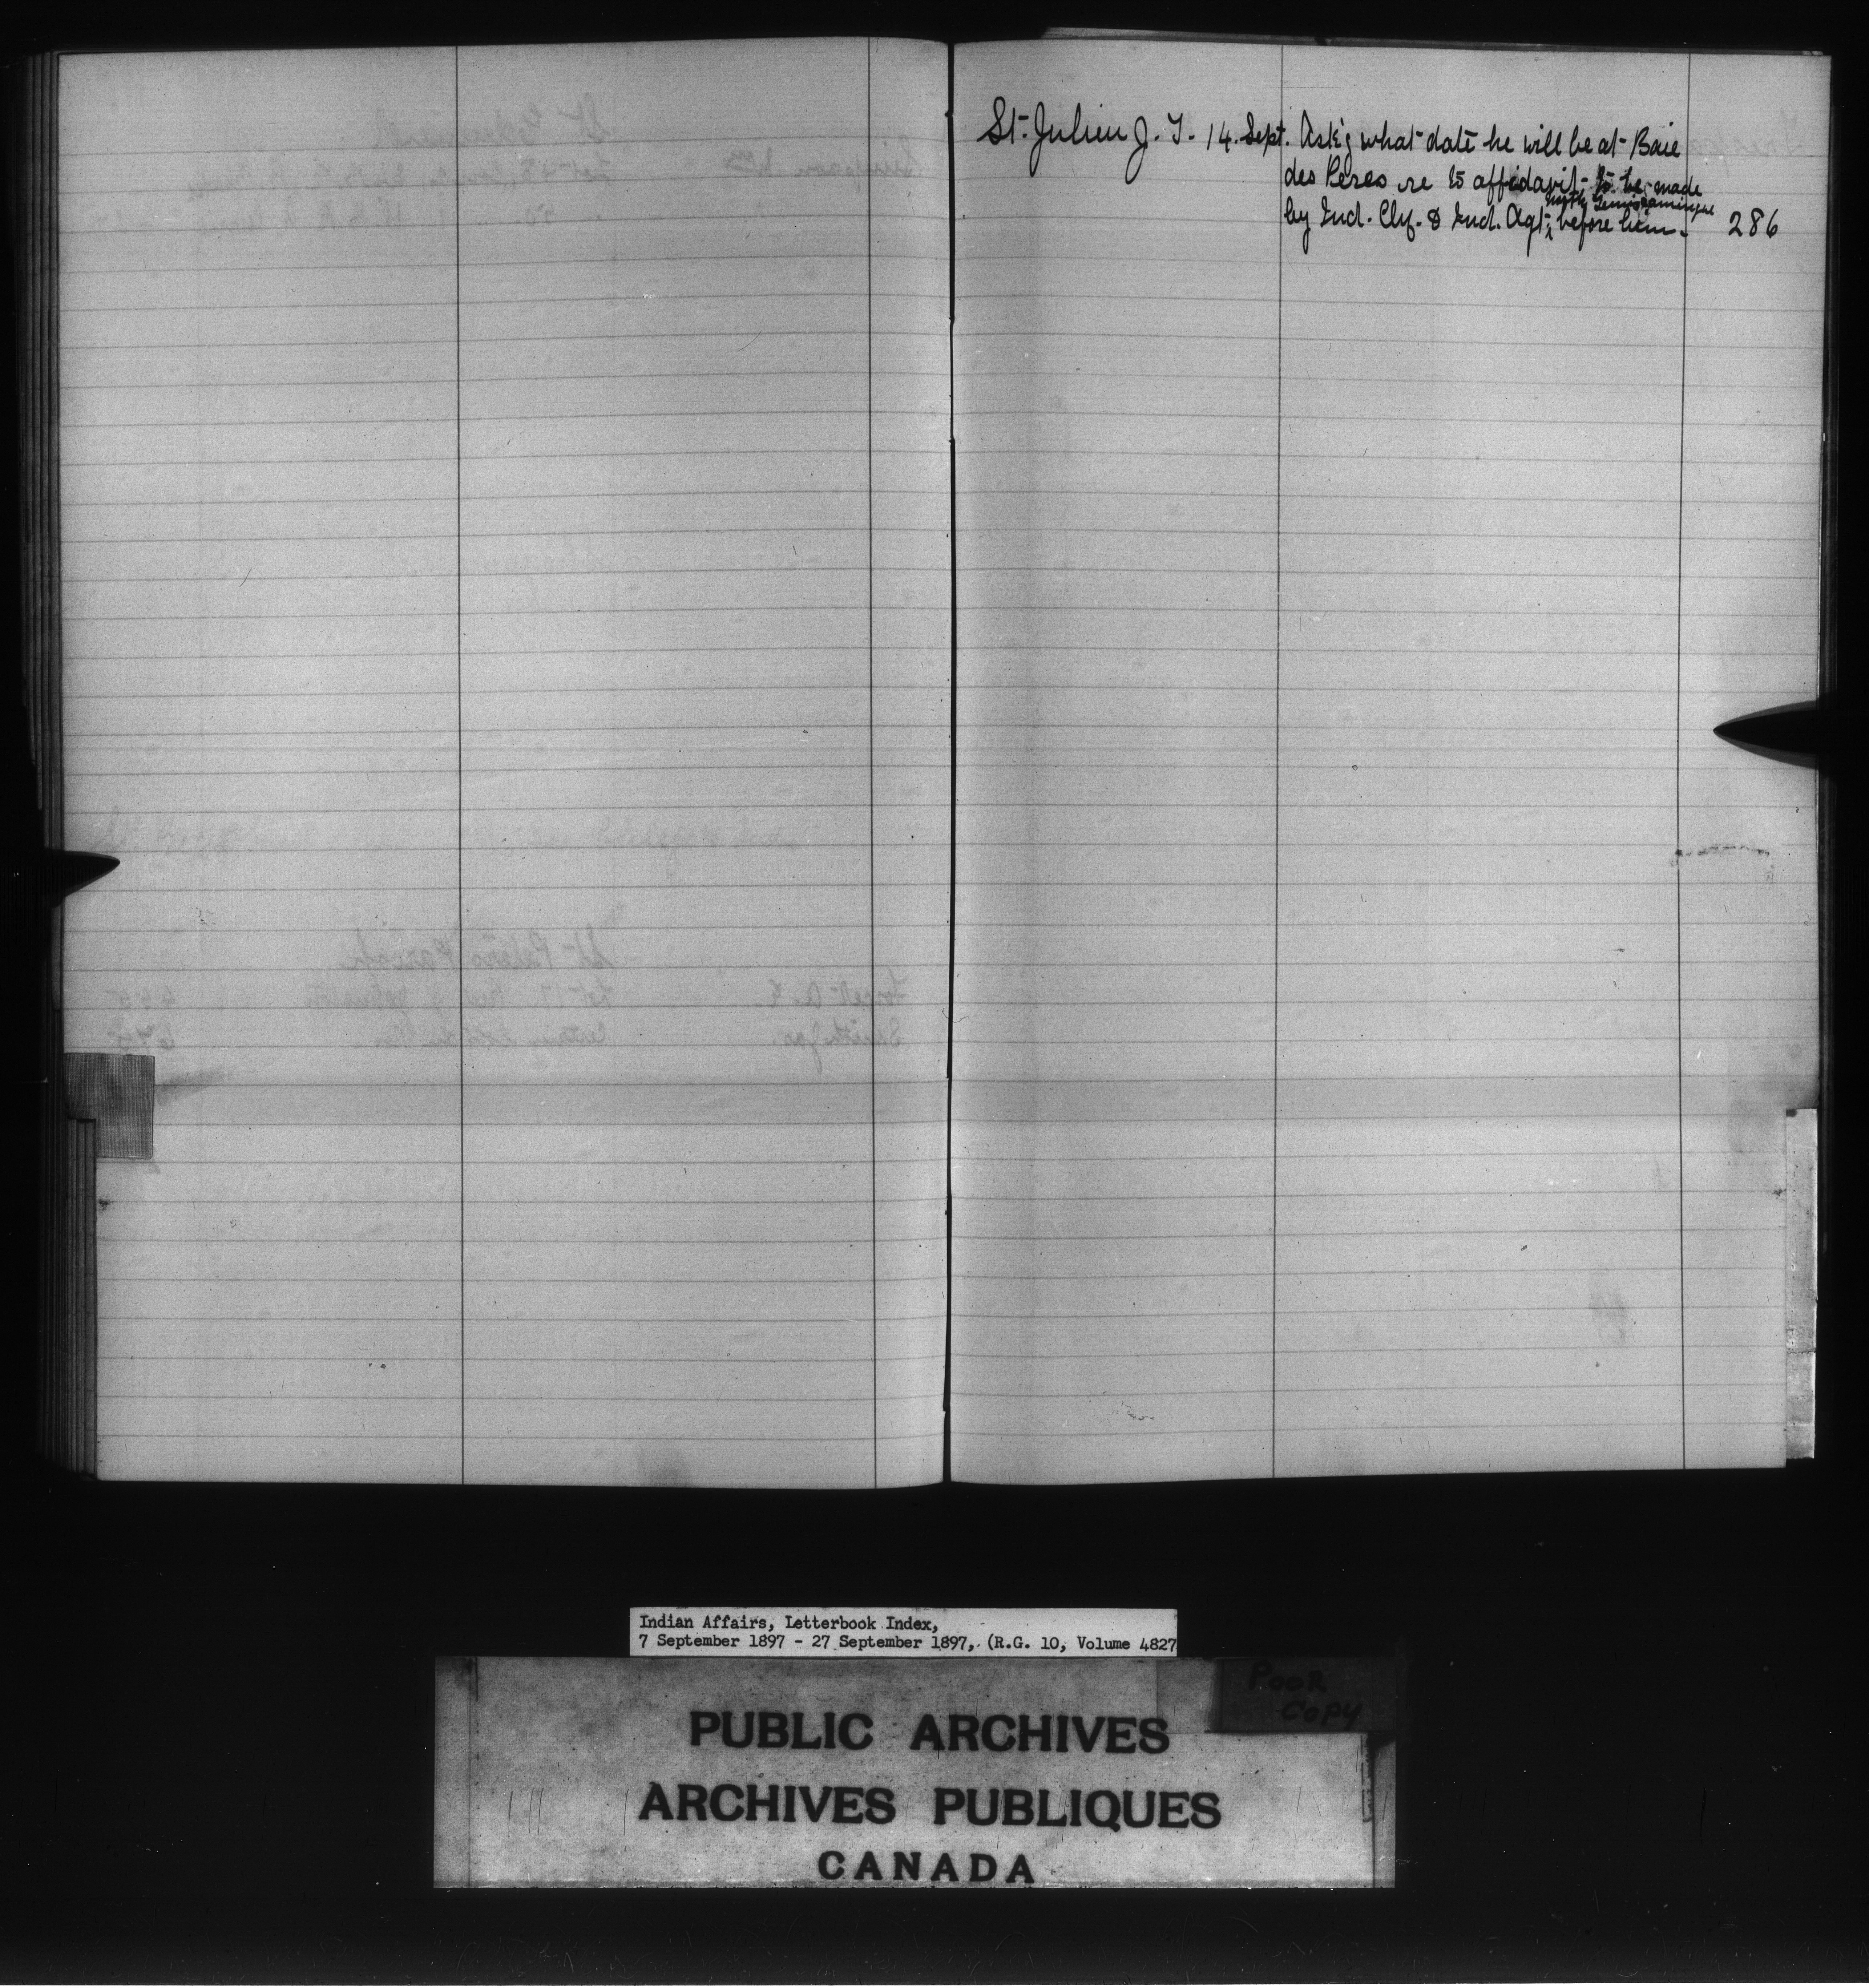 St. Julien J. T. 14. Sept. Ask'g what date he will be at Baie
des Peres re to affidavit to be made
North Temiscamingue
by Ind. Chf. & Ind. Agt. before him. 286
Indian Affairs, Letterbook Index,
7 September 1897 - 27 September 1897, (R.G. 10, Volume 4827
POOR
COPY
PUBLIC ARCHIVES
ARCHIVES PUBLIQUES
CANADA